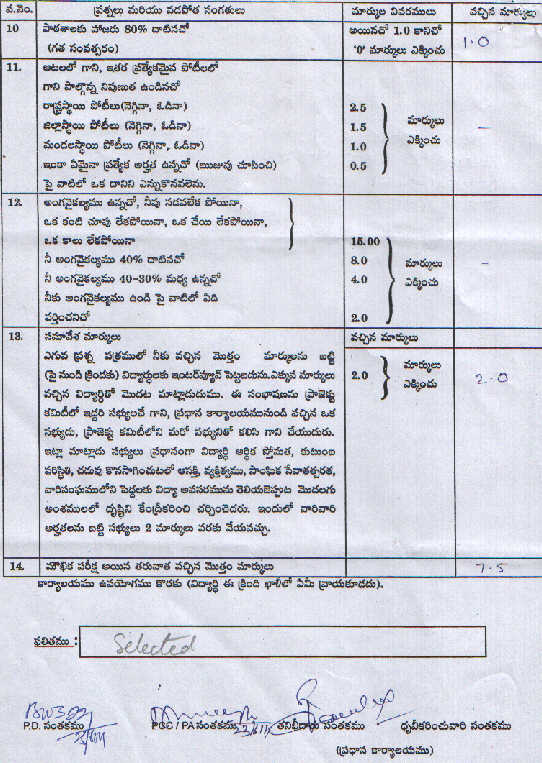 వ.నెం. ప్రశ్నలు మరియు నడపోత సంగతులు మార్కుల వివరములు వచ్చిన మార్కులు
10 పాఠశాలకు హాజరు 80% దాటినచో అయినచో 1.0 కానిచో 1.0
(గత సంవత్సరం) '0' మార్కులు ఎక్కించు
11. ఆటలలో గాని, ఇతర ప్రత్యేకమైన పోటీలలో
గాని పాల్గొన్న నిపుణత ఉండినచో
రాష్ట్రస్థాయి పోటీలు(నెగ్గినా, ఓడినా) 2.5
జిల్లాస్థాయి పోటీలు (నెగ్గినా, ఓడినా) 1.5 మార్కులు
మండలస్థాయి పోటీలు (నెగ్గినా, ఓడినా) 1.0 ఎక్కించు
ఇంకా ఏమైనా ప్రత్యేక అర్హత ఉన్నచో (ఋజువు చూపించి) 0.5
పై వాటిలో ఒక దానిని ఎన్నుకొనవలెను.
12. అంగవైకల్యము ఉన్నచో, నీవు నడవలేక పోయినా,
ఒక కంటి చూపు లేకపోయినా, ఒక చేయి లేకపోయినా,
ఒక కాలు లేకపోయినా 15.00
నీ అంగవైకల్యము 40% దాటినచో 8.0 మార్కులు
నీ అంగవైకల్యము 40-30% మధ్య ఉన్నచో 4.0 ఎక్కించు
నీకు అంగవైకల్యము ఉండి పై వాటిలో ఏది
వర్తించనిచో 2.0
13. సమావేశ మార్కులు వచ్చిన మార్కులు
ఎగువ ప్రశ్న పత్రములో నీకు వచ్చిన మొత్తం మార్కులను బట్టి
(పై నుండి క్రిందకు) విద్యార్థులకు ఇంటర్వ్యూన్ పెట్టబడును.ఎక్కువ మార్కులు 2.0 మార్కులు 2.0
వచ్చిన విద్యార్థితో మొదట మాట్లాడుదుము. ఈ సంభాషణను ప్రాజెక్టు ఎక్కించు
కమిటీలో ఇద్దరి సభ్యులచే గాని, ప్రధాన కార్యాలయమునుండి వచ్చిన ఒక
సభ్యుడు, ప్రాజెక్టు కమిటీలోని మరో సభ్యునితో కలిసి గాని చేయుదురు.
ఇట్లా మాట్లాడు సభ్యులు ప్రధానంగా విద్యార్థి ఆర్థిక స్తోమత, కుటుంబ
పరిస్థితి, చదువు కొనసాగించుటలో ఆసక్తి, వ్యక్తిత్వము, సాంఘిక సేవాతత్పరత,
వారిసంఘములోని పెద్దలకు విద్యా అవసరమును తెలియజెప్పుట మొదలగు
అంశములలో దృష్టిని కేంద్రీకరించి చర్చించెదరు. ఇందులో వారివారి
అర్హతలను బట్టి సభ్యులు 2 మార్కులు వరకు వేయవచ్చు.
14. మౌఖిక పరీక్ష అయిన తరువాత వచ్చిన మొత్తం మార్కులు 7.5
కార్యాలయము ఉపయోగము కొరకు (విద్యార్థి ఈ క్రింది ఖాళీలో ఏమీ వ్రాయకూడదు).
ఫలితము : Selected
P.D. సంతకము PGC / PA సంతకము తనిఖీదారు సంతకము ధృవీకరించువారి సంతకము
(ప్రధాన కార్యాలయము)